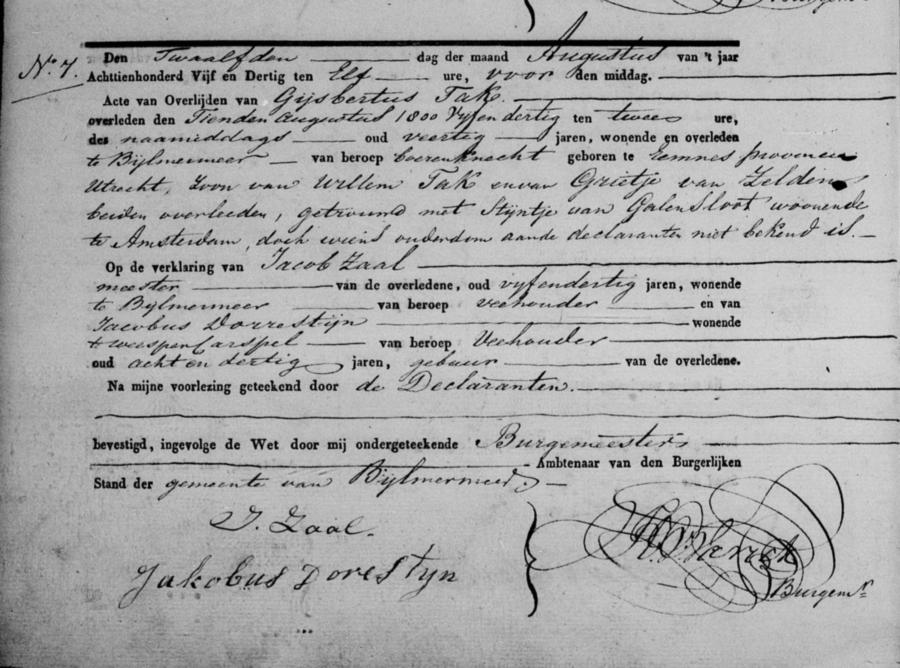 Den Twaalfden dag der maand Augustus van 't jaar
No. 7.
Achttienhonderd Vijf en Dertig ten Elf ure, voor den middag.
Acte van Overlijden van Gijsbertus Tak
overleden den Tienden Augustus 1800 Vyfendertig ten twee ure,
des naamiddags oud veertig jaren, wonende en overleden
te Bijlmermeer van beroep boerenknecht geboren te Eemnes provencie
Utrecht, Zoon van Willem Tak en van Grietje van Zelden
beiden overleeden, getrouwd met Stijntje van Galensloot woonende
te Amsterdam, doch wiens ouderdom aande declaranten niet bekend is.
Op de verklaring van Jacob Zaal
meester van de overledene, oud vyfendertig jaren, wonende
te Bylmermeer van beroep veehouder en van
Jacobus Dorrestijn wonende
te weespercarspel van beroep Veehouder
oud acht en dertig jaren, gebuur van de overledene.
Na mijne voorlezing geteekend door de Declaranten.
bevestigd, ingevolge de Wet door mij ondergeteekende Burgemeester
Ambtenaar van den Burgerlijken
Stand der gemeente van Bijlmermeer.
J. Zaal.
Jakobus Dorestyn
Burgemr